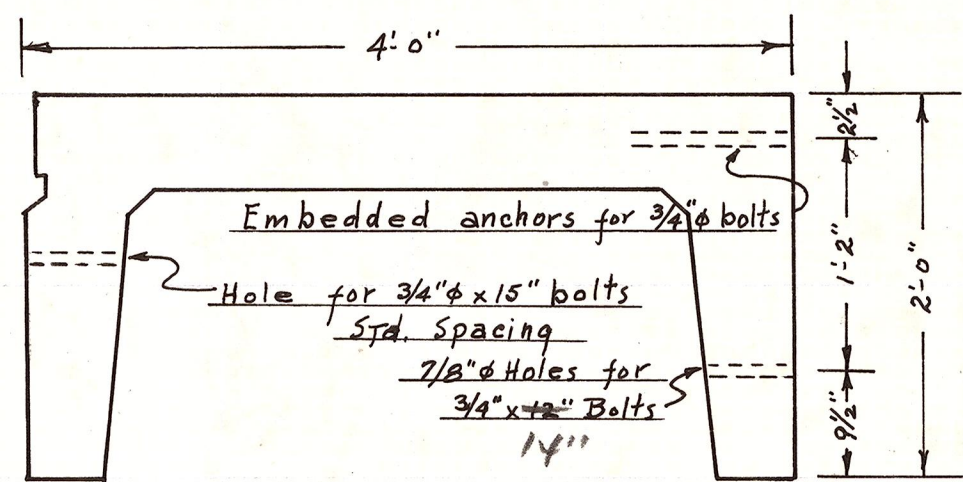 4'-0"
2½"
Embedded anchors for 3/4"ϕ bolts
1'-2"
2'-0"
Hole for 3/4"ϕ x 15" bolts
STd. Spacing
7/8"ϕ Holes for
3/4" x 12" Bolts
14"
9½"